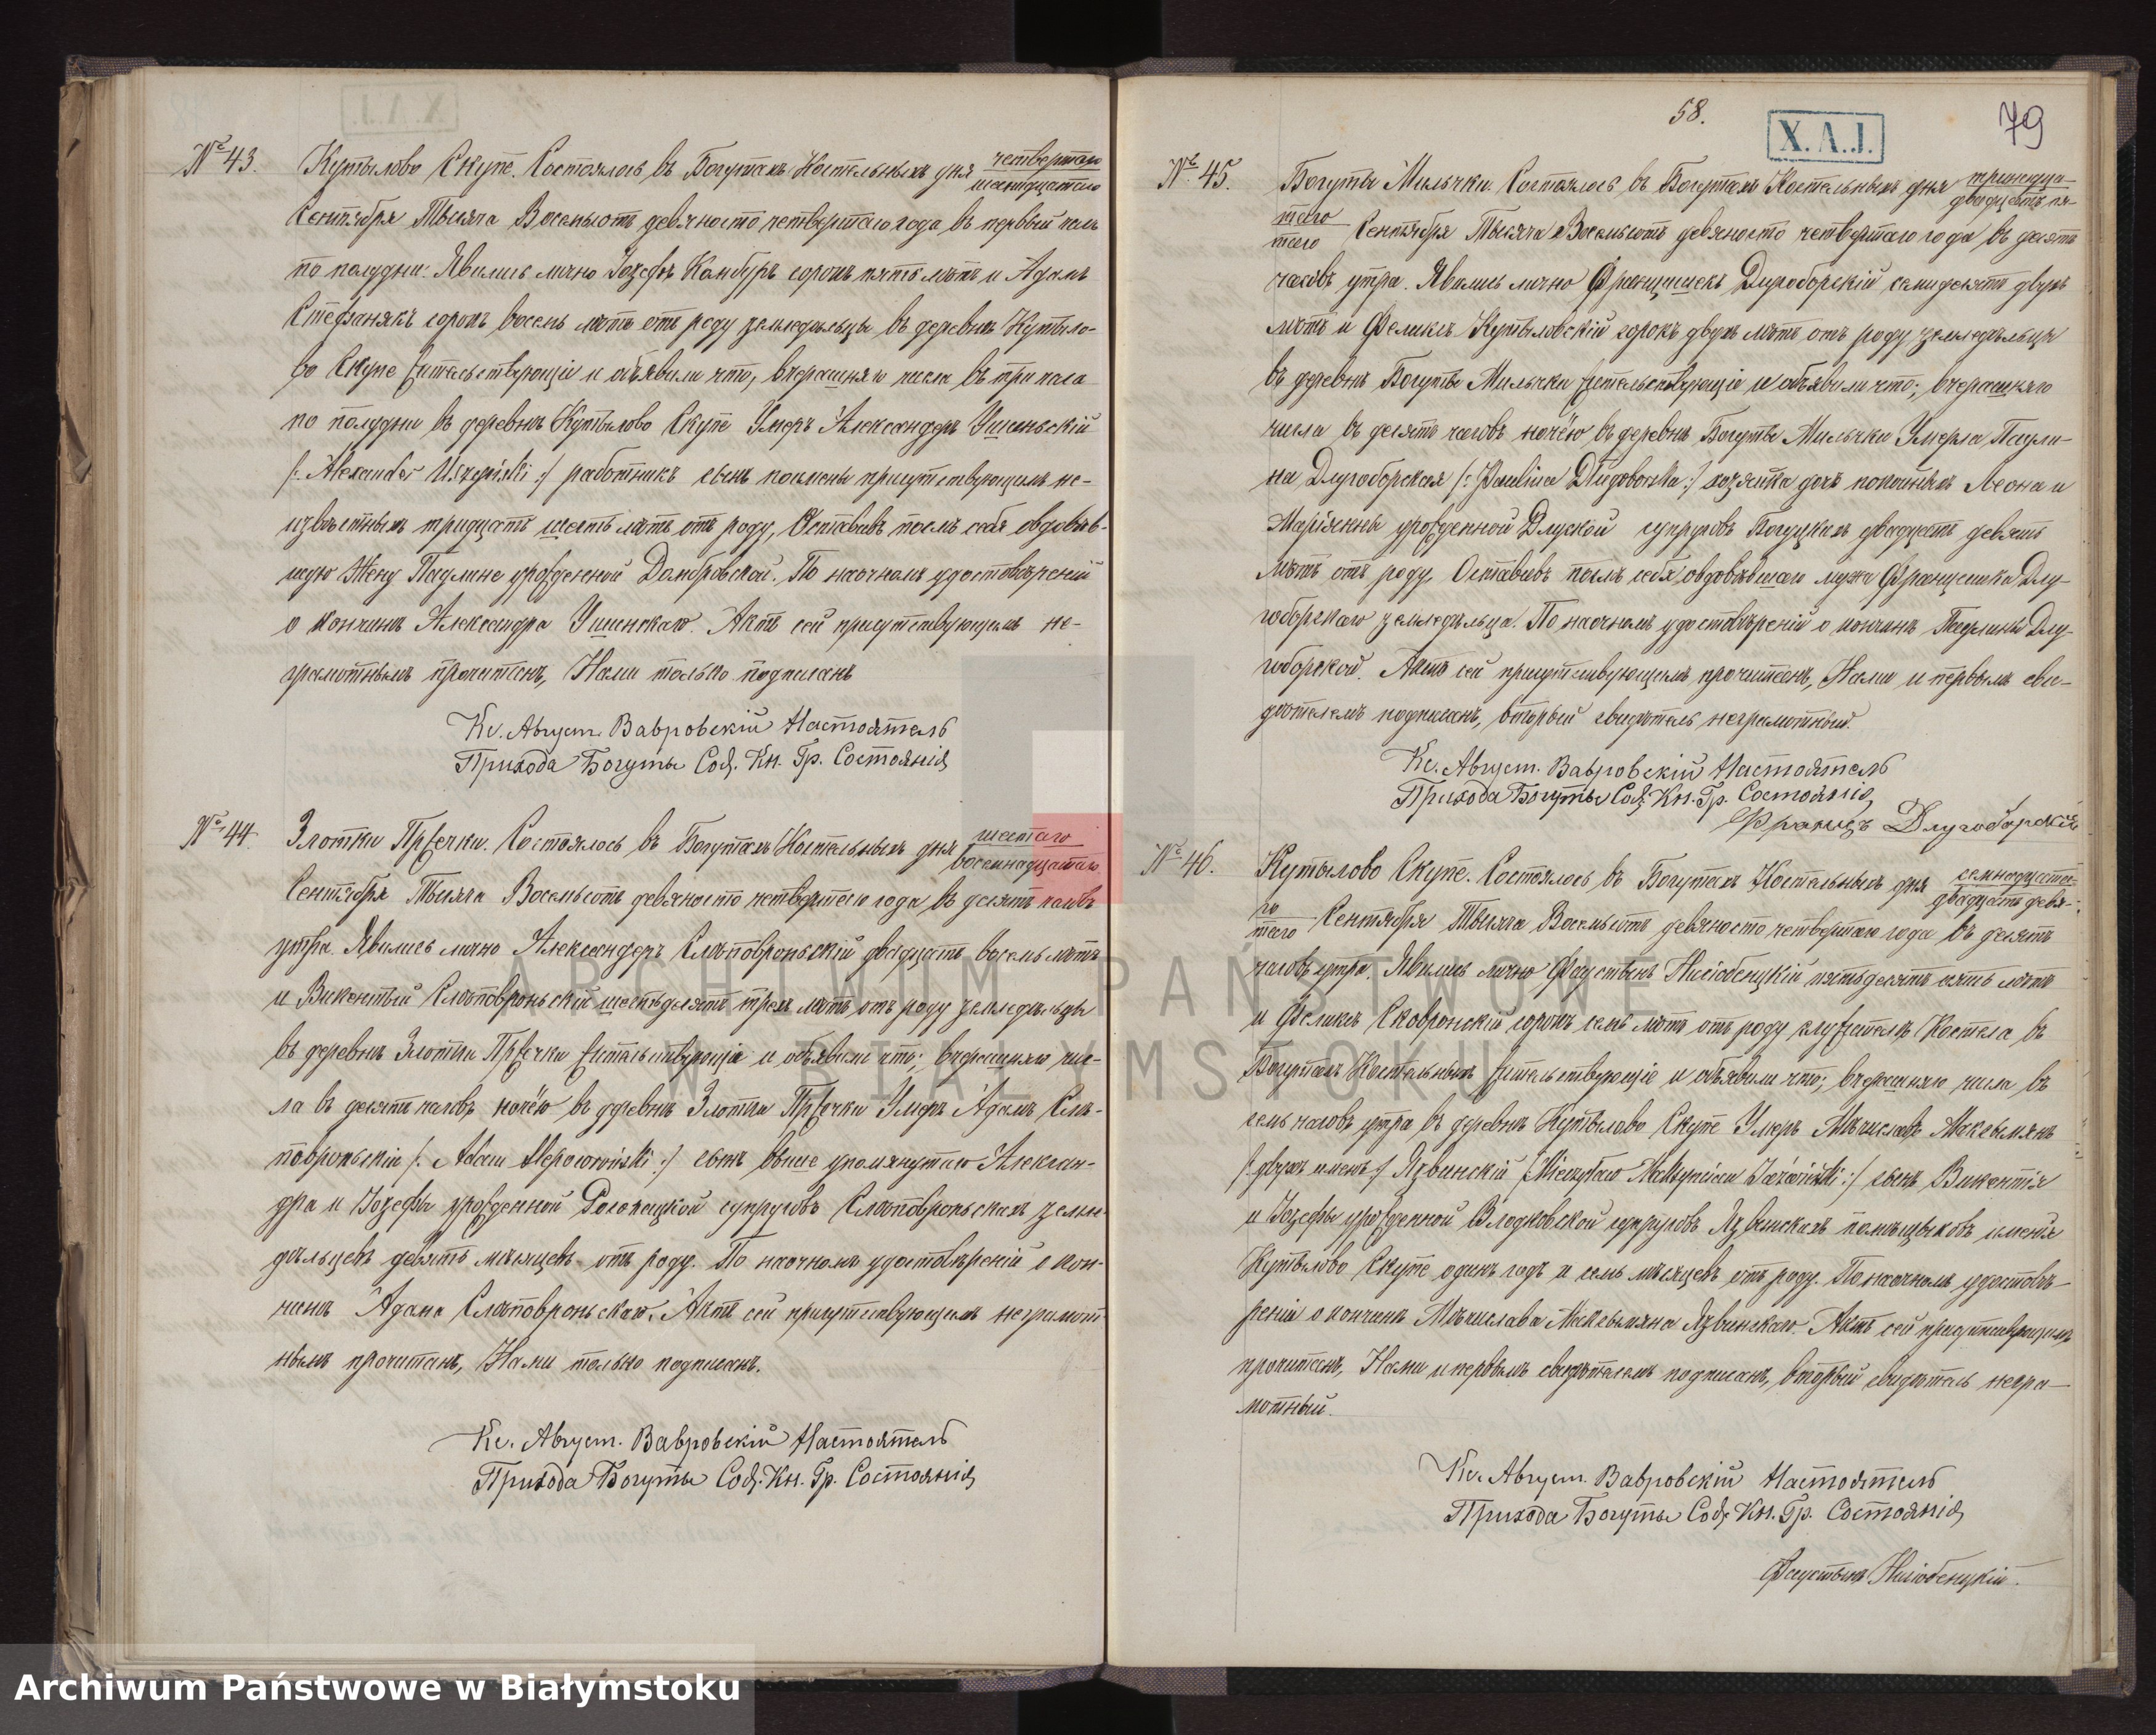 № 43. Кутылово Скупе. Состоялось въ Богутахъ Костельныхъ дня четвертаго
шестнадцатаго
Сентября Тысяча Восемьсотъ девяносто четвертаго года въ первый часъ
по полудни. Явились лично Іозефъ Камбуръ сорокъ пять лѣтъ и Адамъ
Стефанякъ сорокъ восемь лѣтъ отъ роду земледѣльцы въ деревнѣ Кутыло-
во Скупе жительствующіе и объявили что, вчерашняго числа въ три часа
по полудни въ деревнѣ Кутылово Скупе Умеръ Александеръ Ушиньскій
/: Alexander Uszyński :/ работникъ сынъ по имени присутствующимъ не-
извѣстныхъ тридцать шесть лѣтъ отъ роду, Оставивъ послѣ себя овдовѣв-
шую Жену Паулине урожденной Домбровской. По наочномъ удостовѣреніи
о кончинѣ Александра Ушинскаго. Актъ сей присутствующимъ не-
грамотнымъ прочитанъ, Нами только подписанъ
Кс. Август. Вавровскій Настоятель
Прихода Богуты Сод. Кн. Гр. Состоянія
№ 44. Злотки Пржечки. Состоялось въ Богутахъ Костельныхъ дня шестаго
восемнадцатаго
Сентября Тысяча Восемьсотъ девяносто четвертаго года въ десять часовъ
утра. Явились лично Александеръ Слѣповроньскій двадцать восемь лѣтъ
и Викентый Слѣповроньскій шестьдесятъ трехъ лѣтъ отъ роду земледѣльцы
въ деревнѣ Злотки Пржечки жительствующіе и объявили что; вчерашняго чис-
ла въ десять часовъ ночёю въ деревнѣ Злотки Пржечки Умеръ Адамъ Слѣ-
повроньскій /: Adam Slepowroński :/ сынъ выше упомянутаго Алексан-
дра и Іозефы урожденной супруговъ Слѣповроньскихъ земле-
дѣльцевъ девять мѣсяцевъ отъ роду. По наочномъ удостовѣреніи о кон-
чинѣ Адама Слѣповроньскаго. Актъ сей присутствующимъ неграмот-
нымъ прочитанъ, Нами только подписанъ.
Кс. Август. Вавровскій Настоятель
Прихода Богуты Сод. Кн. Гр. Состоянія
58.
X.A.J.
79
№ 45. Богуты Мильчки. Состоялось въ Богутахъ Костельныхъ дня тринадца-
двадцать пя-
таго
таго Сентября Тысяча Восемьсотъ девяносто четвертаго года въ десять
часовъ утра. Явились лично Францишекъ Длугоборскій семидесяти двухъ
лѣтъ и Феликсъ Кутыловскій сорокъ двухъ лѣтъ отъ роду земледѣльцы
въ деревнѣ Богуты Мильчки жительствующіе и объявили что; вчерашняго
числа въ десять часовъ ночёю въ деревнѣ Богуты Мильчки Умерла Паули-
на Длугоборская /: Paulina Długoborska :/ хозяйка дочь покойныхъ Леона и
Маріянны урожденной Длуской супруговъ Богуцкихъ двадцать девять
лѣтъ отъ роду, Оставивъ послѣ себя овдовѣвшаго мужа Францишка Длу-
гоборскаго земледѣльца. По наочномъ удостовѣреніи о кончинѣ Паулины Длу-
гоборской. Актъ сей присутствующимъ прочитанъ, Нами и первымъ сви-
дѣтелемъ подписанъ, вторый свидѣтель неграмотный.
Кс. Август. Вавровскій Настоятель
Прихода Богуты Сод. Кн. Гр. Состоянія
Францъ Длугоборскій
№ 46. Кутылово Скупе. Состоялось въ Богутахъ Костельныхъ дня семнадцата-
двадцать девя-
го
таго Сентября Тысяча Восемьсотъ девяносто четвертаго года въ десять
часовъ утра. Явились лично Фаустынъ пятьдесятъ лѣтъ
и Феликсъ Сковронскій сорокъ семь лѣтъ отъ роду служитель Костела въ
Богутахъ Костельныхъ жительствующіе и объявили что; вчерашняго числа въ
семь часовъ утра въ деревнѣ Кутылово Скупе Умеръ Мѣчиславъ Максымянъ
/: двухъ именъ :/ Язвинскій /: Mieczysław Maksymian Jaźwiński :/ сынъ Викентія
и Іозефы урожденной Влодковской супруговъ Язвинскихъ помѣщиковъ именія
Кутылово Скупе одинъ годъ и семь мѣсяцевъ отъ роду. По наочномъ удостовѣ-
реніи о кончинѣ Мѣчислава Максымяна Язвинскаго. Актъ сей присутствующимъ
прочитанъ, Нами и первымъ свидѣтелемъ подписанъ, вторый свидѣтель негра-
мотный.
Кс. Август. Вавровскій Настоятель
Прихода Богуты Сод. Кн. Гр. Состоянія
Фаустынъ
ARCHIWUM PAŃSTWOWE
W BIAŁYMSTOKU
Archiwum Państwowe w Białymstoku